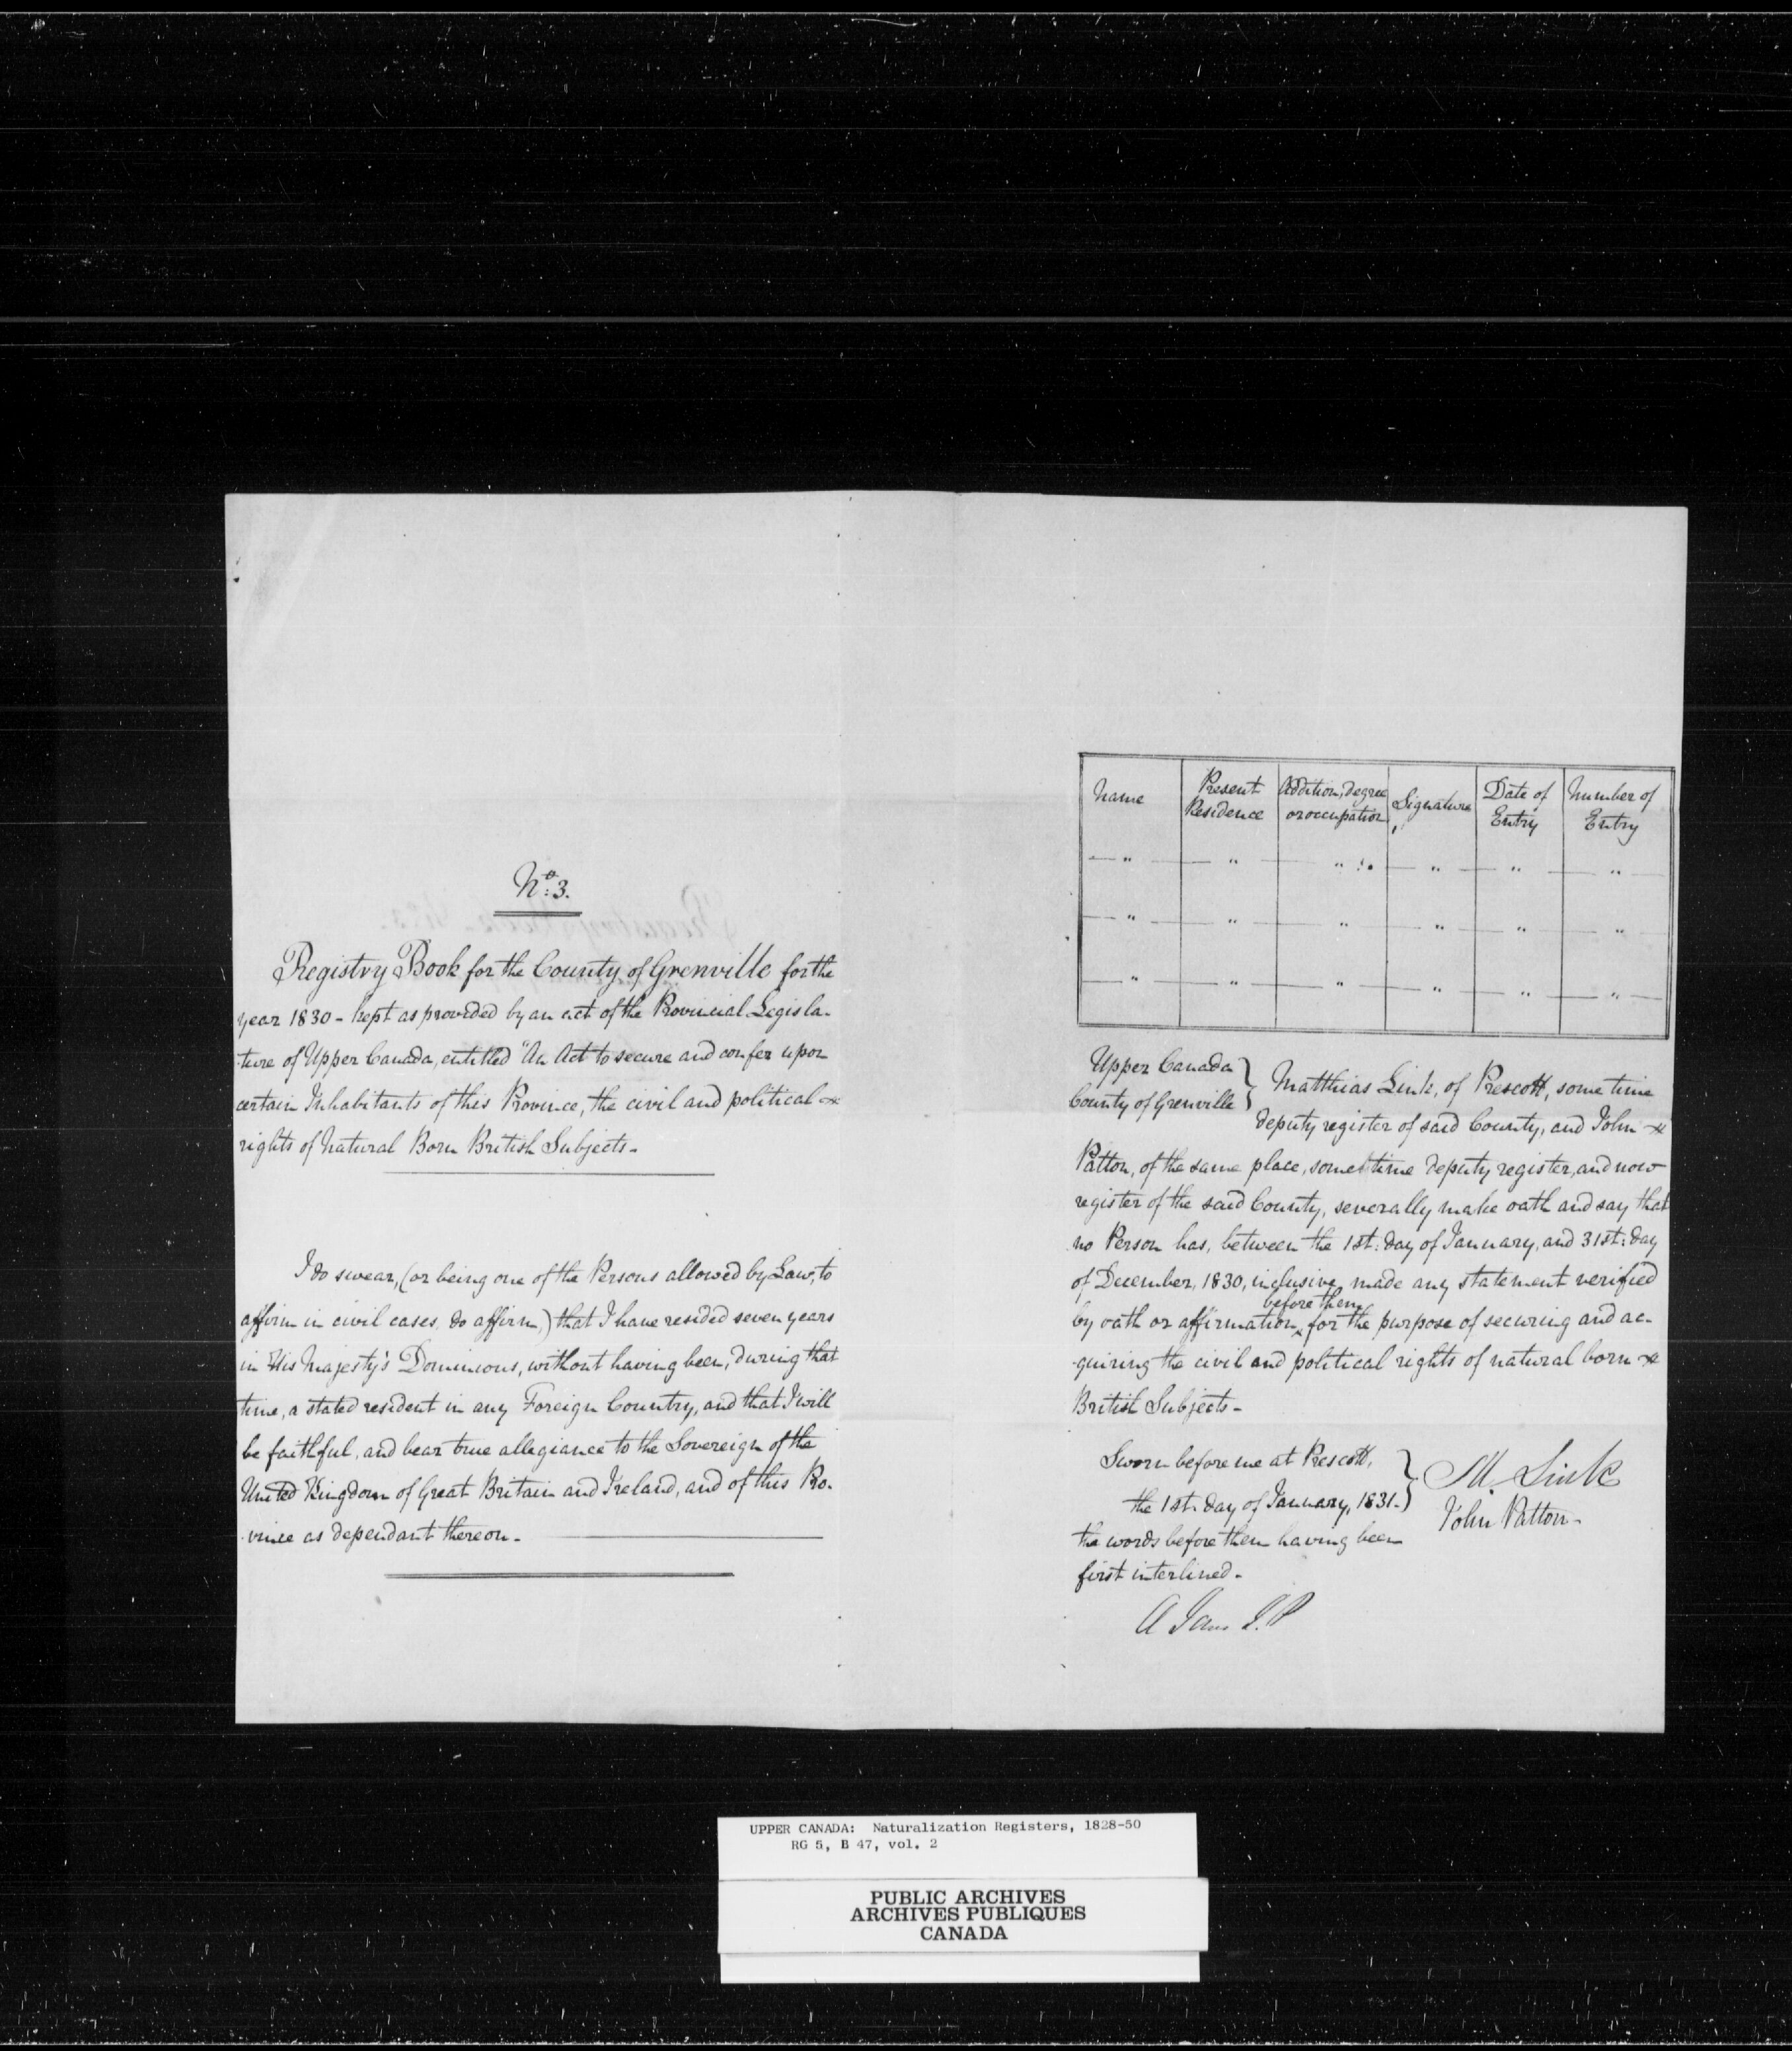 No. 3.
Registry Book for the County of Grenville for the
year 1830 - kept as provided by an act of the Provincial Legisla-
-ture of Upper Canada, entitled "An Act to secure and confer upon
certain Inhabitants of this Province, the civil and political
rights of Natural Born British Subjects-
I do swear, (or being one of the Persons allowed by Law, to
affirm in civil cases, do affirm,) that I have resided seven years
in His Majesty's Dominions, without having been, during that
time, a stated resident in any Foreign Country, and that I will
be faithful, and bear true allegiance to the Sovereign of the
United Kingdom of Great Britain and Ireland, and of this Pro-
-vince as dependant thereon-
Name Present Residence Addition, degree or occupation Signature Date of Entry Number of Entry
" " " " " "
" " " " " "
" " " " " "
Upper Canada
County of Grenville } Matthias Link, of Prescott, some time
deputy register of said County, and John
Patton, of the same place, sometime deputy register, and now
register of the said County, severally make oath and say that
no Person has, between the 1st: day of January, and 31st: day
of December, 1830, inclusive, made any statement verified
before them
by oath or affirmation, for the purpose of securing and ac-
-quiring the civil and political rights of natural born
British Subjects-
Sworn before me at Prescott,
the 1st. day of January, 1831. }
the words before them having been
first interlined-
M. Link
John Patton-
A J.P
UPPER CANADA: Naturalization Registers, 1828-50
RG 5, B 47, vol. 2
PUBLIC ARCHIVES
ARCHIVES PUBLIQUES
CANADA